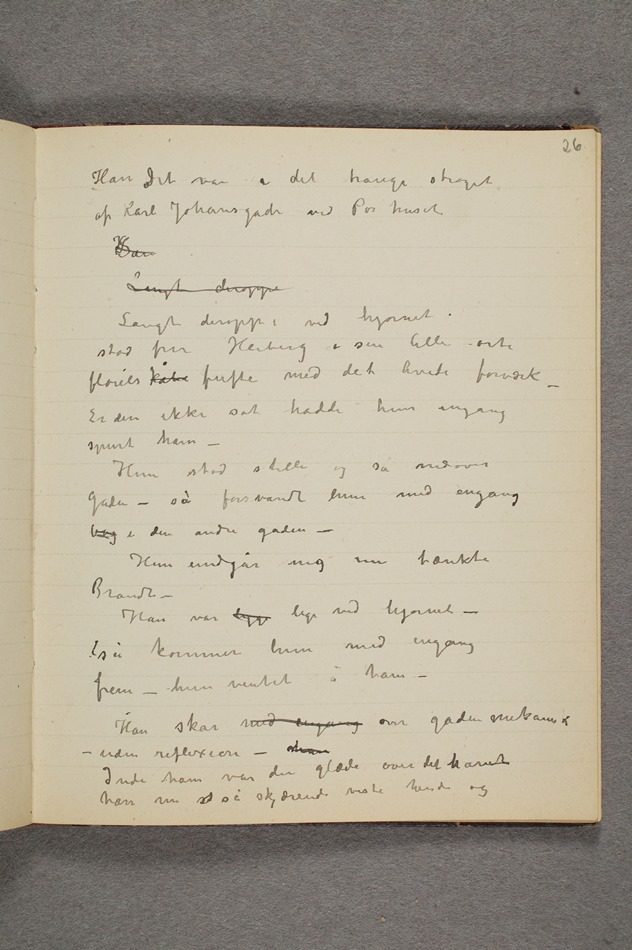 26
Han Det var i det trange strøget
af Karl Johansgade ved Posthuset
Han
Langt deroppe
Langt deroppe ved hjørnet
stod fru Heiberg i sin lille sorte
fløiels kåbe frifte med det hvide forværk –
Er den ikke søt hadde hun engang
spurt ham –
Hun stod stille og så nedover
gaden – så forsvandt hun med engang
bag i den andre gaden –
Hun undgår mig nu tænkte
Brandt –
Han var lige ved hjørnet –
så kommer hun med engang
frem – hun ventet på ham –
Han skar med engang over gaden mekanisk
– uden reflexion –
Inde ham var der glæde over det harmet
ham nu så skjærende viste hende og